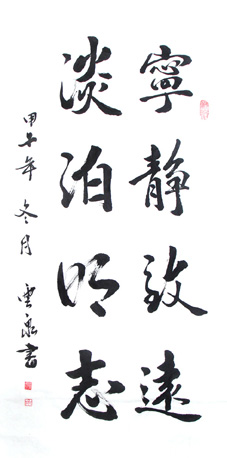 寧靜致遠
淡泊明志
甲午年冬月雲泉書